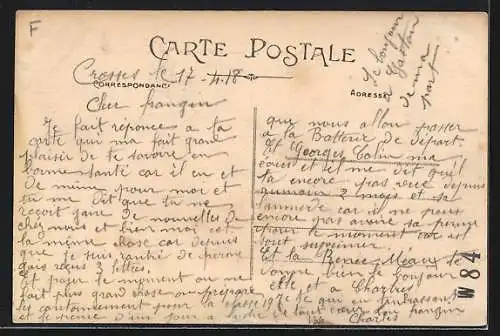 F
CARTE POSTALE
Crosses le 17-4-18
CORRESPONDANCE
ADRESSE
le bonjour
à Gaston
de ma
part
Cher frangin
Je fait réponce a ta
carte qui ma fait grand
plaisir de te savoir en
bonne santé car il en et
de même pour moi et
tu me dit que tu ne
reçoit gare de nouvelles de
chez nous et bien moi cet
la même chose car depuis
que je suis rentré de perme
jais reçus 3 lettres.
Et pour le moment on ne
fait plus grand chose on prépare
les cantonnement pour la classe 19
que nous allon passer
a la Batterie de départ.
Et Georges ma
écrit et il me dit qu'il
la encore pas vue depuis
2 mois et sa
car il ne peus
encore pas avoir sa perme
pour le moment car est
tout supprimer.
Et la
bien le bonjour
et a Charles
frangin
Charles
W 84